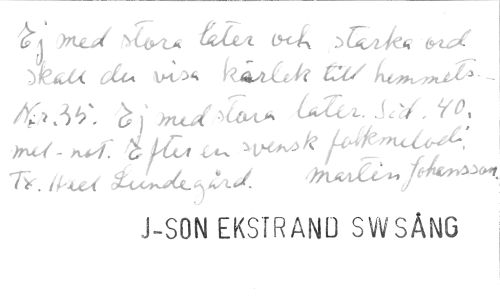 Ej med stora later och starka ord
skall du visa kärlek till hemmets –
Nr. 35. Ej med stora later. Sid. 40.
mel-not. Efter en svensk folkmelodi.
Tx. Axel Lundegård. Martin Johansson.
J-SON EKSTRAND SW SÅNG